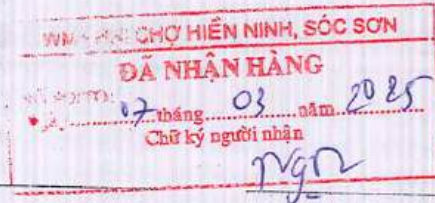 CHỢ HIỀN NINH, SÓC SƠN
ĐÃ NHẬN HÀNG
07 tháng 03 năm 2025
Chữ ký người nhận